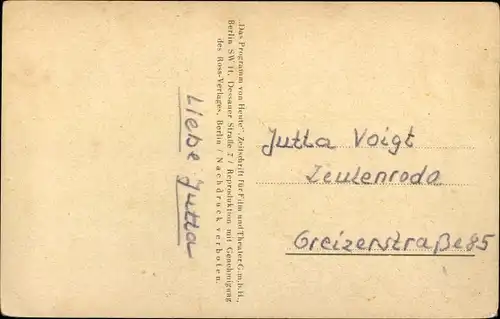 „Das Programm von Heute“, Zeitschrift für Film und Theater G.m.b.H.,
Berlin SW 11, Dessauer Straße 7 / Reproduktion mit Genehmigung
des Ross-Verlages, Berlin / Nachdruck verboten.
Liebe Jutta
Jutta Voigt
Zeulenroda
Greizerstraße 85